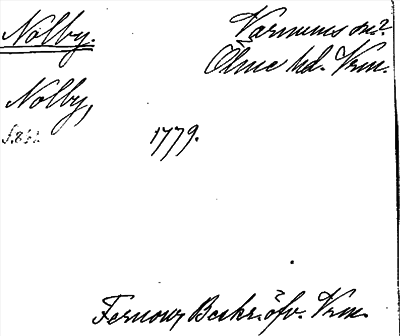 Nolby. Varnums sn?
Ölme hd. Vrm.
Nolby,
1779.
Fernow, Beskr. öfv. Vrm.